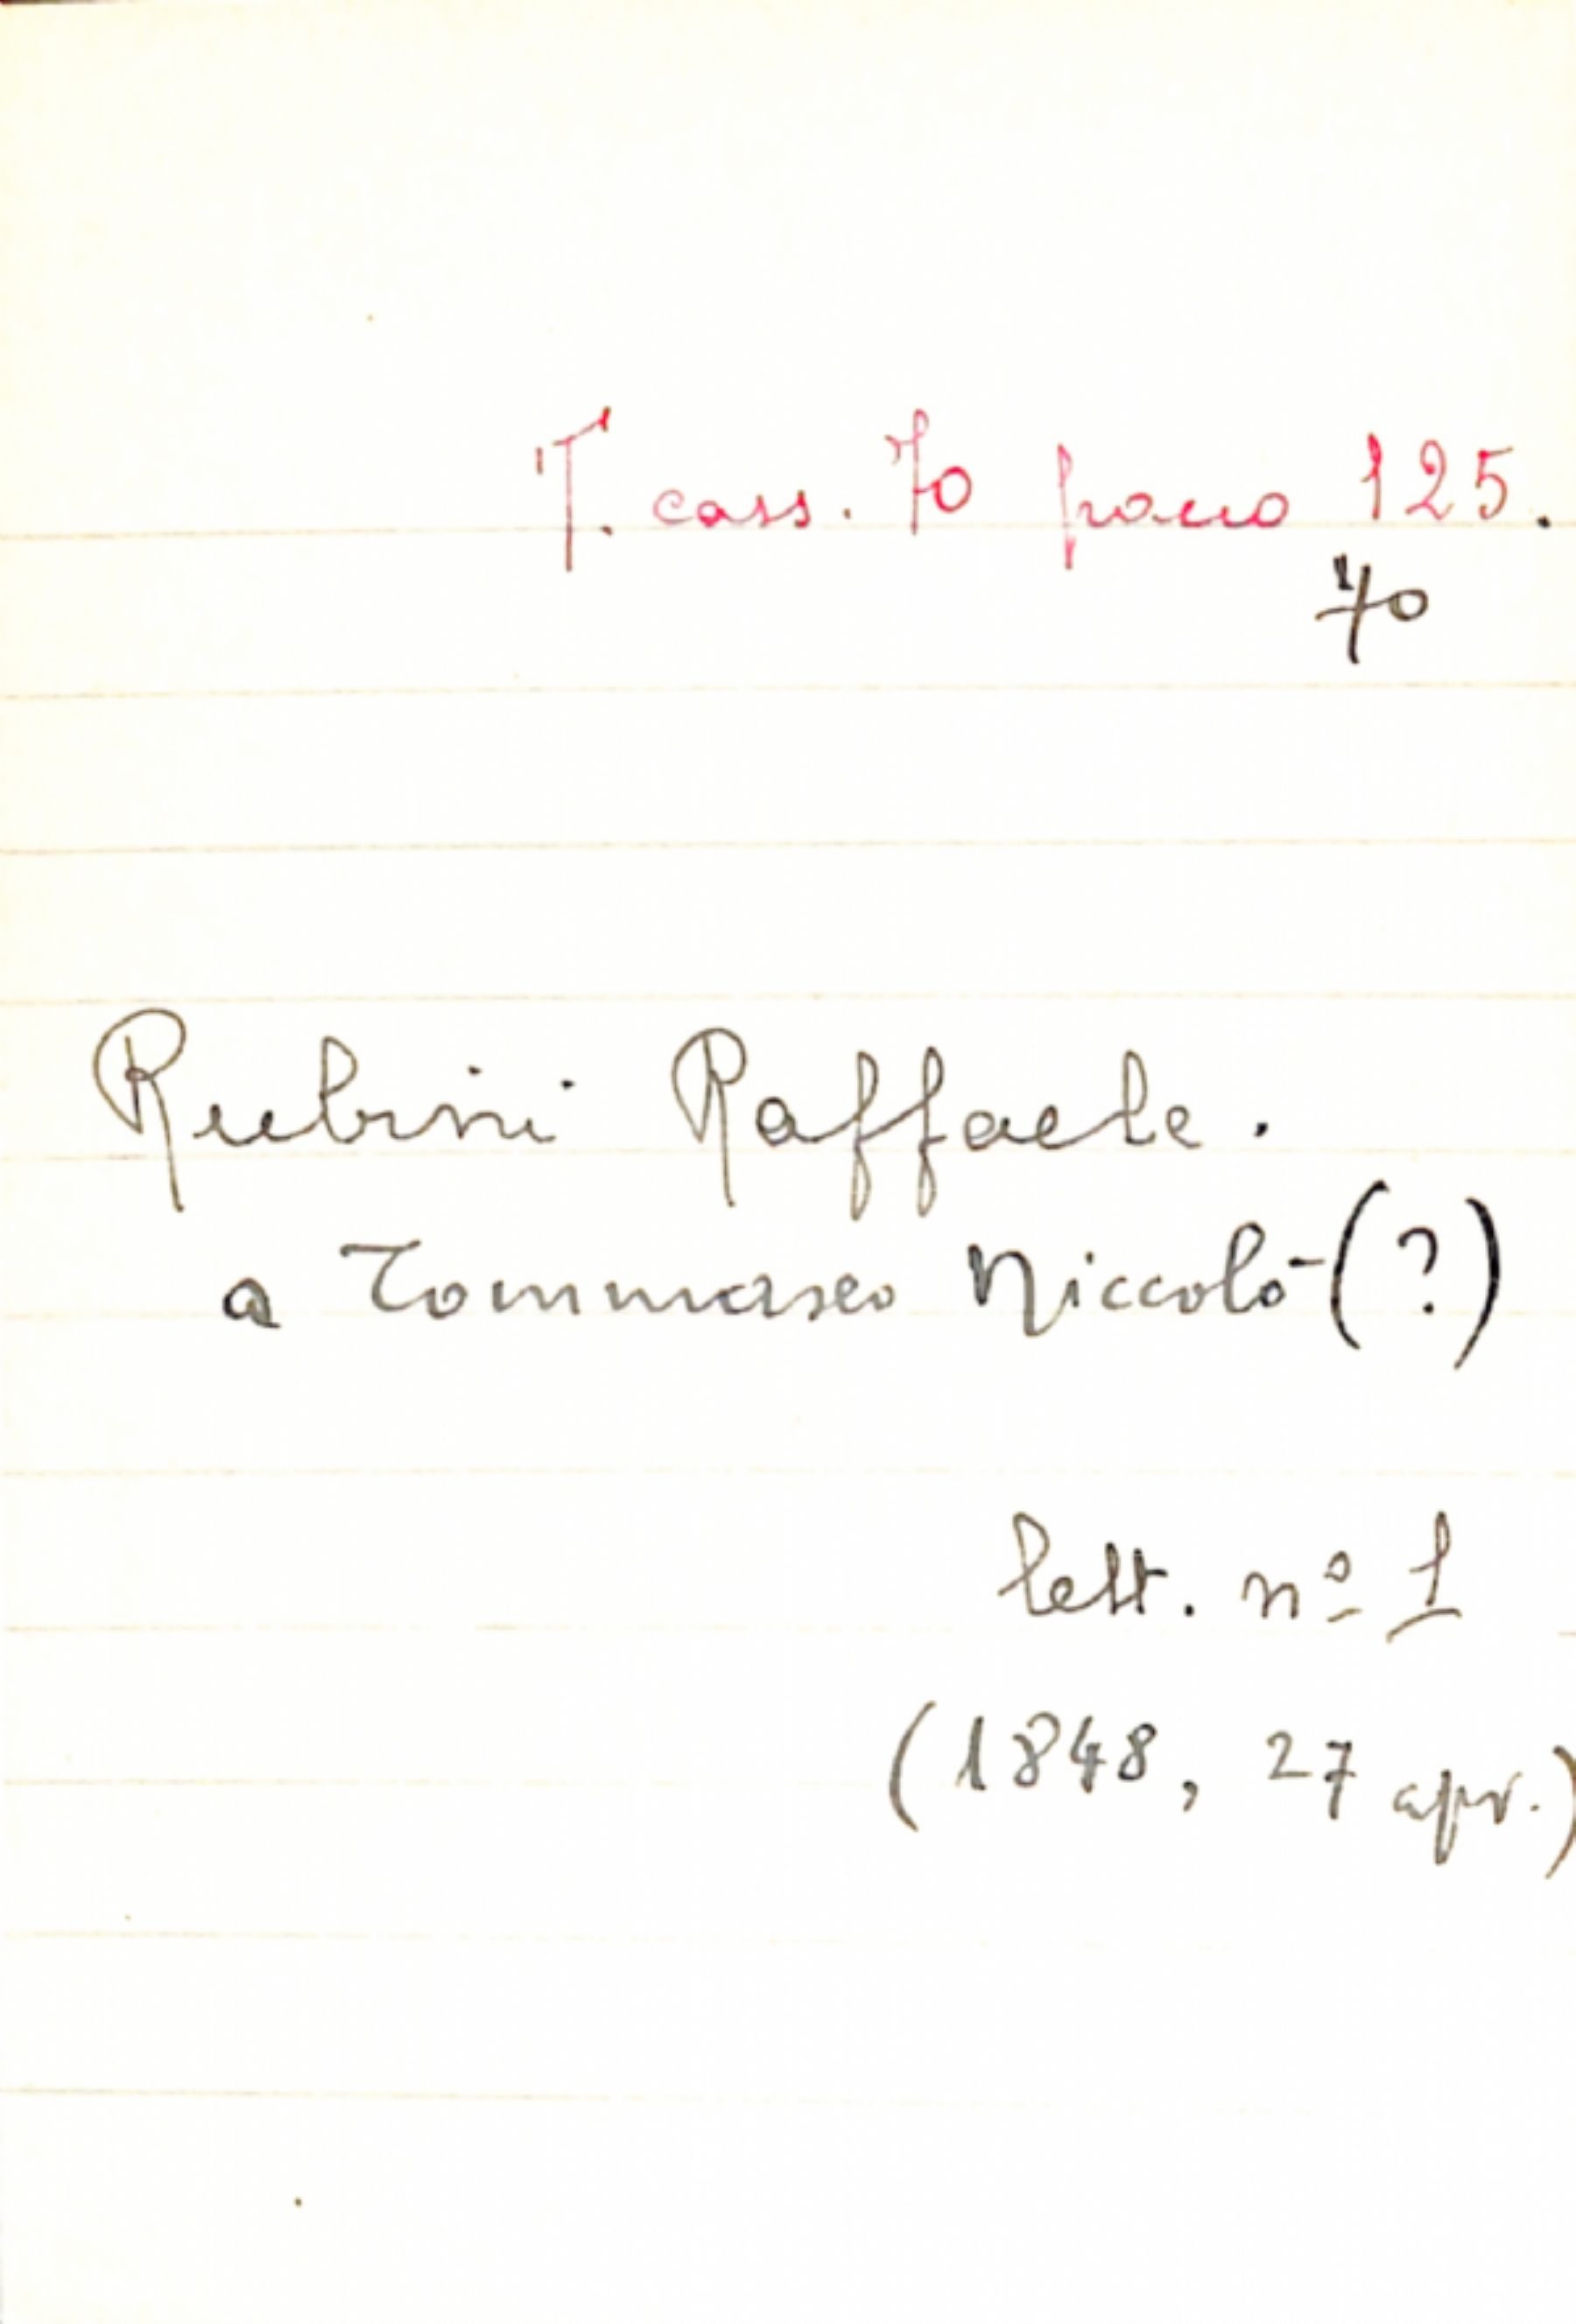 T. cass. 70 pacco 125.
70
Rubini Raffaele.
a Tommaseo Niccolò (?)
lett. nº 1
(1848, 27 apr.)